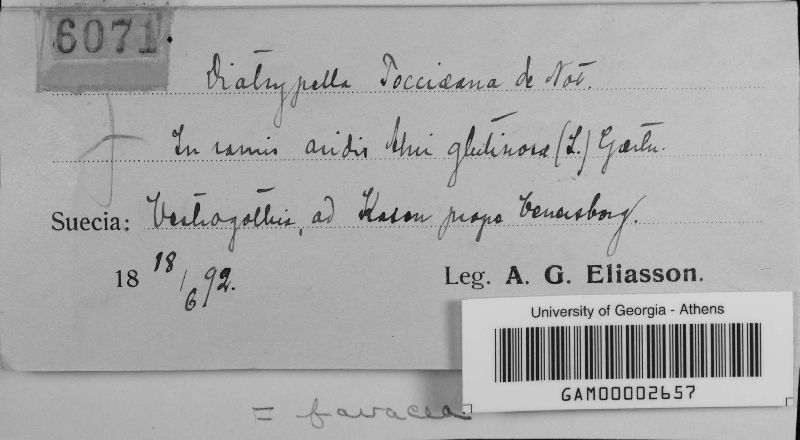 6071.
Diatrypella Tocciæana de Not.
In ramis aridis Alni glutinosæ (L.) Gærtn.
Suecia: Vestrogothia, ad Kasen prope Venersborg.
18 18/6 92.
Leg. A. G. Eliasson.
University of Georgia - Athens
GAM00002657
= favacea